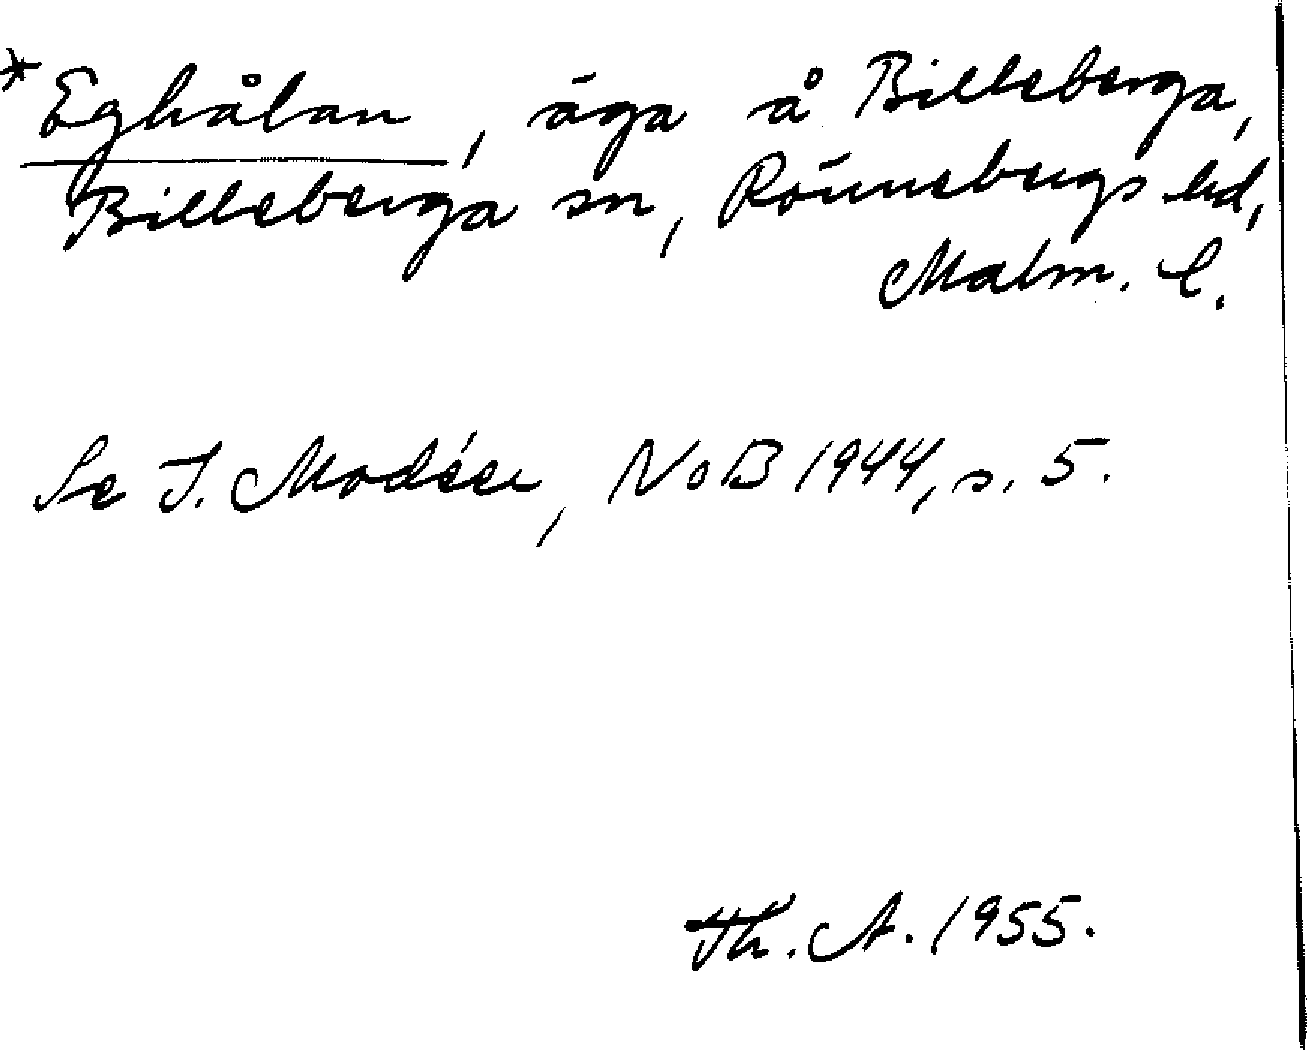 *Eghålan, äga å Billeberga,
Billeberga sn, Rönnebergs hd,
Malm. l.
Se I. Modéer, NoB 1944, s. 5.
Th. A. 1955.